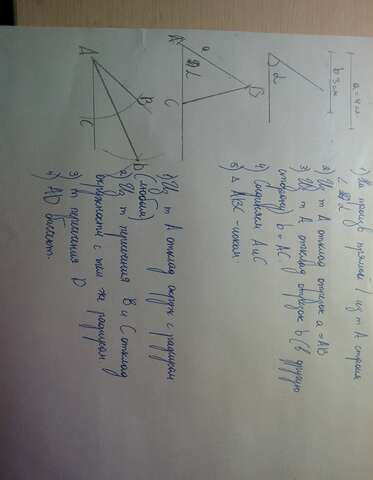 a = 4 см
b = 3 см
α
A
a
α
B
C
1) На произв прямой l из т A строим
∠ α
2) Из т A отклад отрезок a = AB
3) Из т A отклад отрезок b (в другую
сторону) b = AC.
4) Соединяем A и C
5) Δ ABC - иском
A
B
C
D
1) Из т A отклад окруж с радиусом
(любым)
2) Из т пересечения B и C отклад
окружности с тем же радиусом
3) т пересечения D
4) AD биссект.